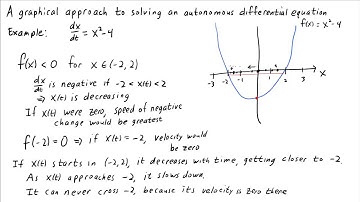 A graphical approach to solving an autonomous differential equation
Example: dx/dt = x²-4
f(x) = x²-4
f(x) < 0 for x ∈ (-2, 2)
dx/dt is negative if -2 < x(t) < 2
⇒ x(t) is decreasing
If x(t) were zero, speed of negative
change would be greatest
-3 -2 -1 1 2 3 x
f(-2) = 0 ⇒ if x(t) = -2, velocity would
be zero
If x(t) starts in (-2, 2), it decreases with time, getting closer to -2
As x(t) approaches -2, it slows down.
It can never cross -2, because its velocity is zero there